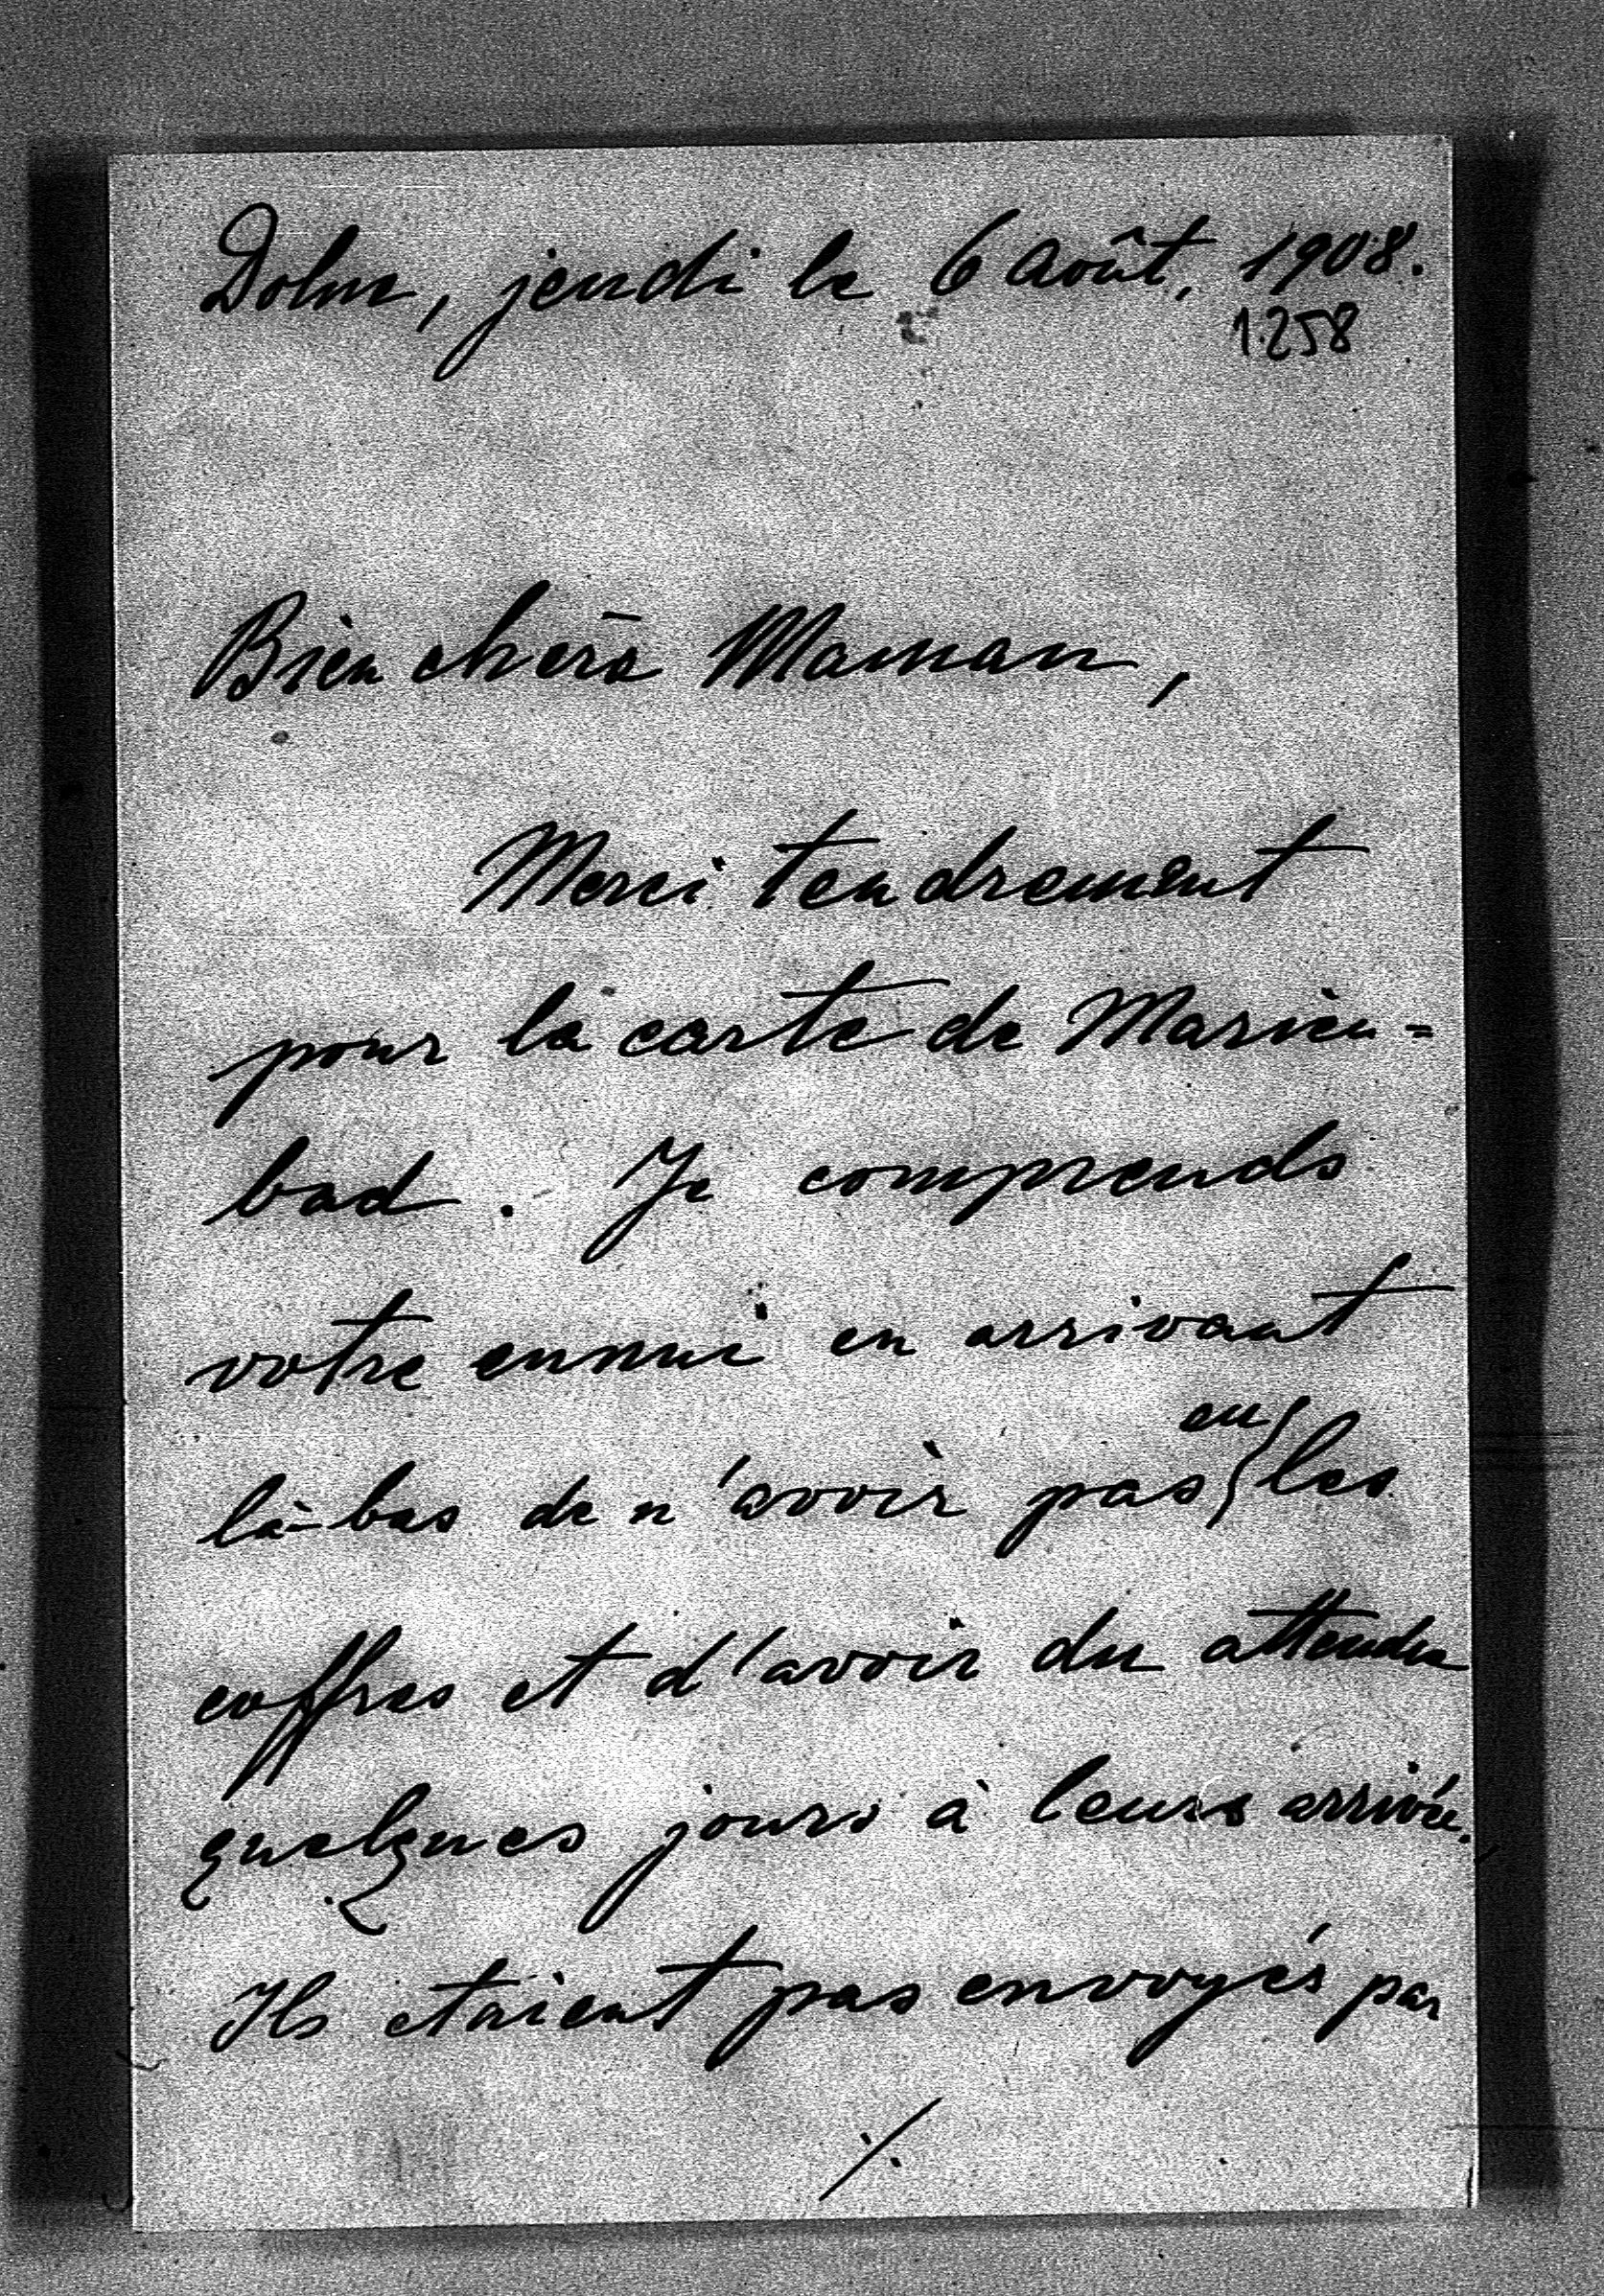 Dolna, jeudi le 6 Août, 1908.
1.258
Bien chère Maman,
Merci tendrement
pour la carte de Marien=
bad. Je comprends
votre ennui en arrivant
eu
là-bas de n'avoir pas les
coffres et d'avoir du attendre
quelques jours à leurs arrivée.
Ils etaient pas envoyés par
./.